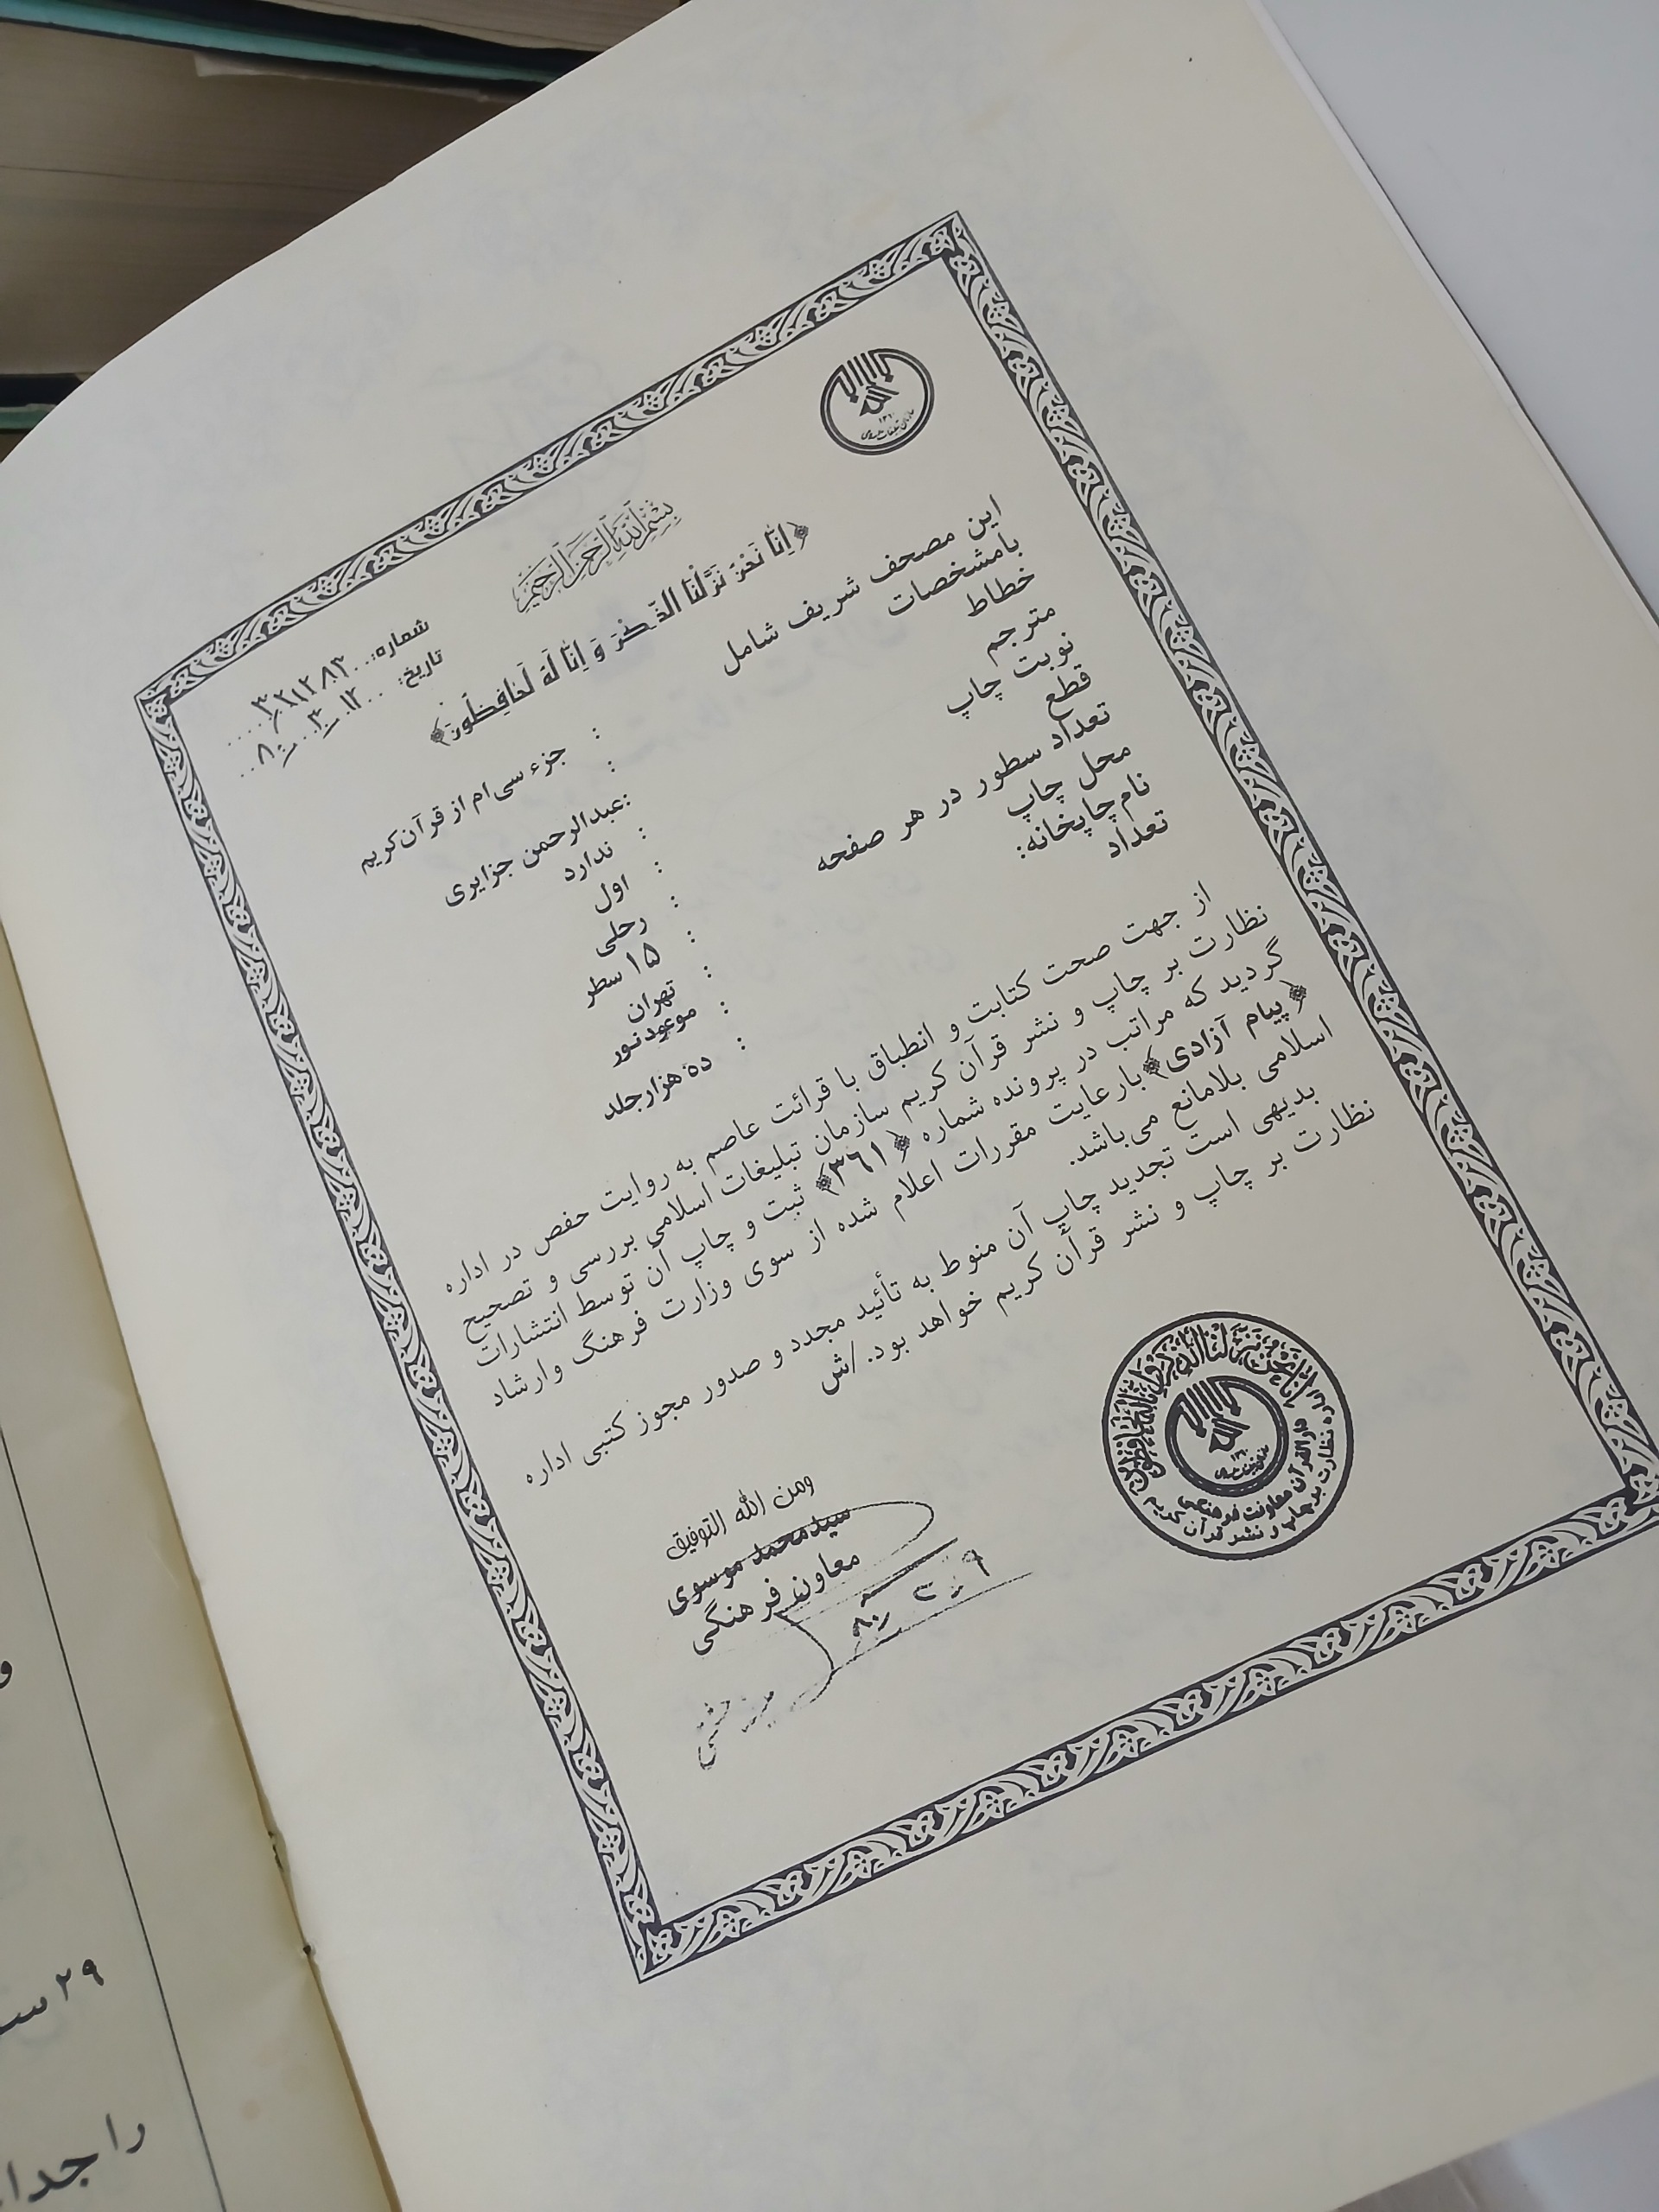 بسم الله الرحمن الرحیم
﴿اِنّا نَحْنُ نَزَّلْنَا الذِّكْرَ وَ اِنّا لَهُ لَحَافِظُونَ﴾
شماره:
تاریخ:
این مصحف شریف شامل : جزء سی‌ام از قرآن‌کریم
بامشخصات :
خطاط :عبدالرحمن جزایری
مترجم : ندارد
نوبت چاپ : اول
قطع : رحلی
تعداد سطور در هر صفحه : ۱۵ سطر
محل چاپ : تهران
نام‌چاپخانه: : موعودنور
تعداد : ده هزارجلد
از جهت صحت کتابت و انطباق با قرائت عاصم به روایت حفص در اداره
نظارت بر چاپ و نشر قرآن کریم سازمان تبلیغات اسلامی بررسی و تصحیح
گردید که مراتب در پرونده شماره ﴿۳۶۱﴾ ثبت و چاپ آن توسط انتشارات
﴿پیام آزادی﴾بارعایت مقررات اعلام شده از سوی وزارت فرهنگ وارشاد
اسلامی بلامانع می‌باشد.
بدیهی است تجدید چاپ آن منوط به تأئید مجدد و صدور مجوز کتبی اداره
نظارت بر چاپ و نشر قرآن کریم خواهد بود. /ش
ومن الله التوفیق
سیدمحمد موسوی
معاونت فرهنگی
انا نحن نزلنا الذکر و انا له لحافظون
دارالقرآن معاونت فرهنگی
اداره نظارت بر چاپ و نشر قرآن کریم
۲۹
را جدا